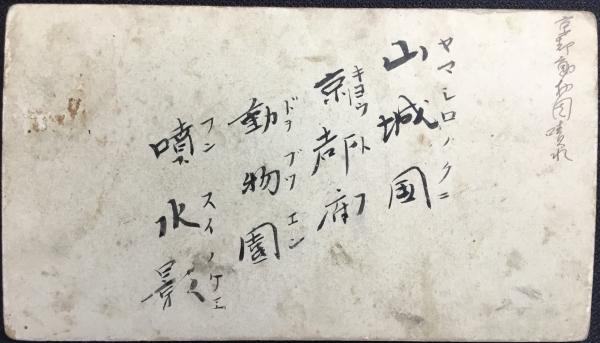 京都動物園噴水
ヤマシロノクニ
山城国
キヨウト
京都府
ドウブツエン
動物園
フンスイノケエ
噴水影